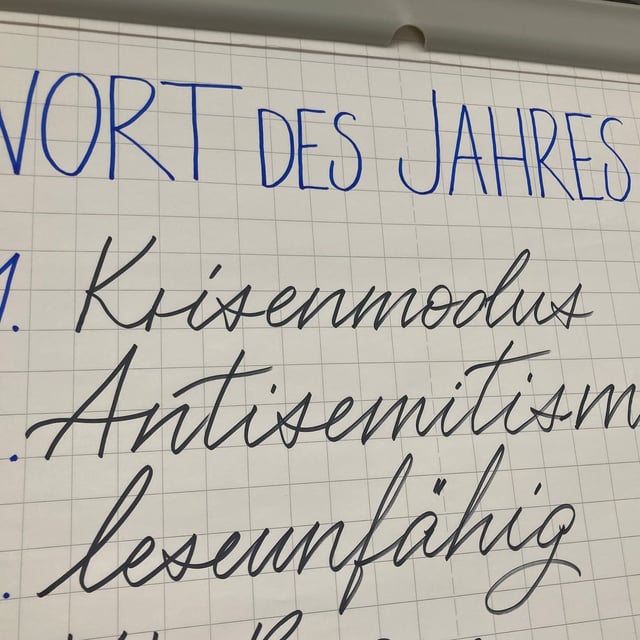 WORT DES JAHRES
1. Krisenmodus
. Antisemitism
. leseunfähig